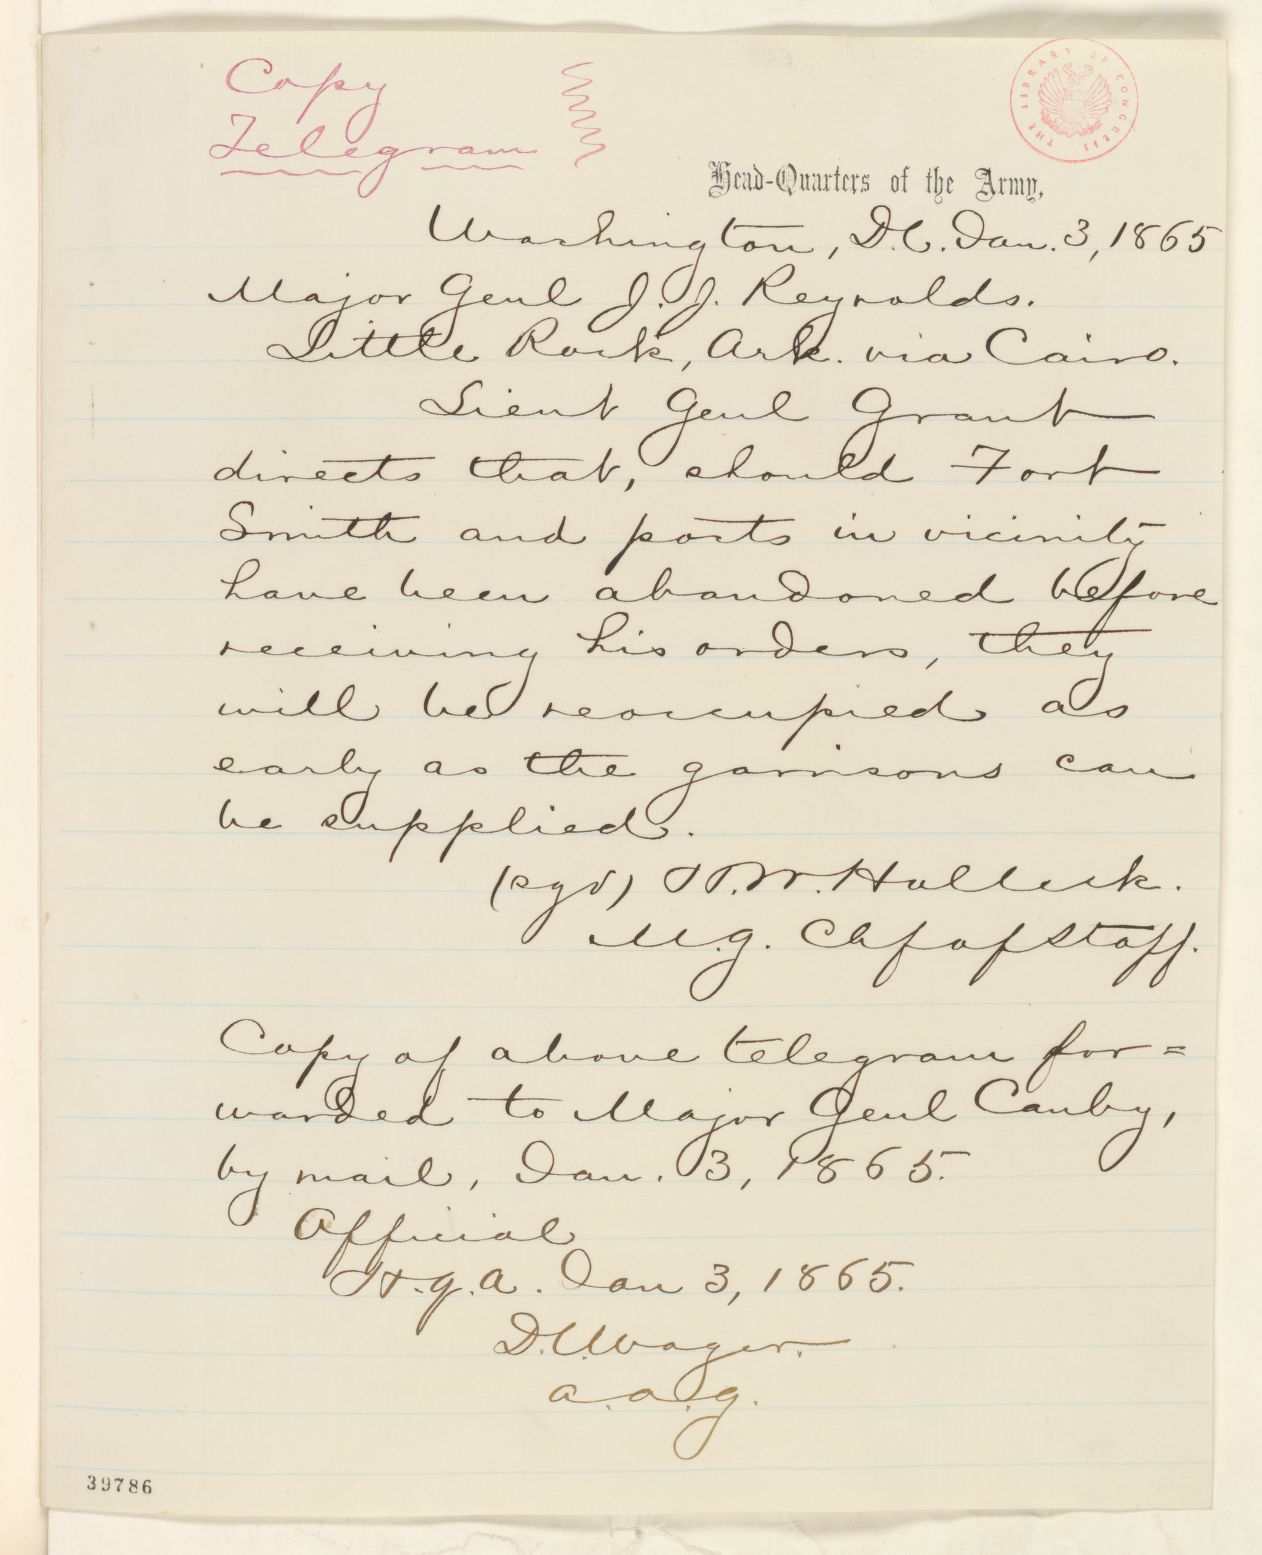 Copy
Telegram
THE LIBRARY OF CONGRESS
Head-Quarters of the Army,
Washington, D.C. Jan. 3, 1865
Major Genl J. J. Reynolds.
Little Rock, Ark. via Cairo.
Lieut Genl Grant
directs that, should Fort
Smith and posts in vicinity
have been abandoned before
receiving his orders, they
will be reoccupied as
early as the garrisons can
be supplied.
(sgd) H. W. Halleck.
M. G. Chf of Staff.
Copy of above telegram for=
warded to Major Genl Canby,
by mail, Jan. 3, 1865.
Official
H. Q. A. Jan 3, 1865.
D. C. Wager.
a. a. g.
39786